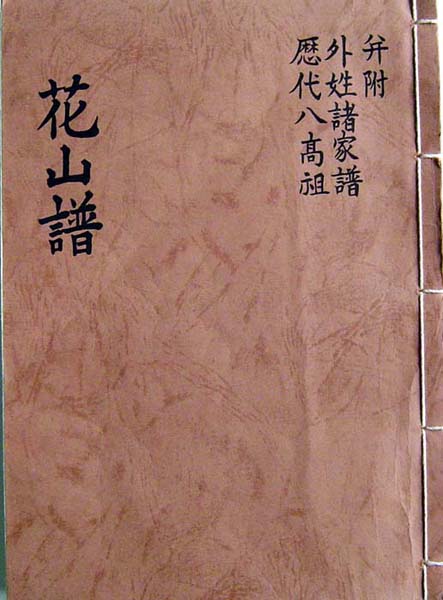 弁附
外姓諸家譜
歷代八高祖
花山譜